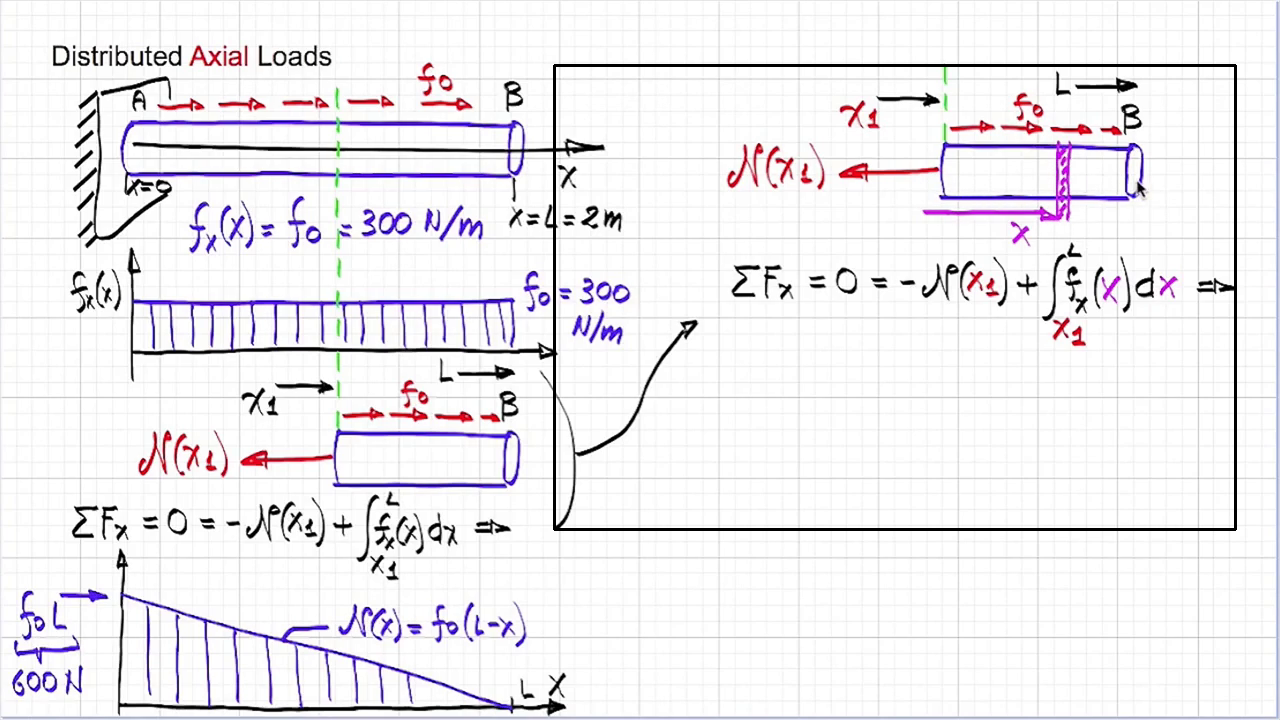 Distributed Axial Loads
A f₀ B
x=0 x
f_x(x) = f₀ = 300 N/m x=L=2m
f_x(x) f₀ = 300
N/m
x₁ L
f₀ B
N(x₁)
ΣF_x = 0 = -N(x₁) + ∫_{x₁}^{L} f_x(x)dx ⇒
f₀L
600N
N(x) = f₀(L-x)
L x
L
x₁ f₀ B
N(x₁)
x
ΣF_x = 0 = -N(x₁) + ∫_{x₁}^{L} f_x(x)dx ⇒